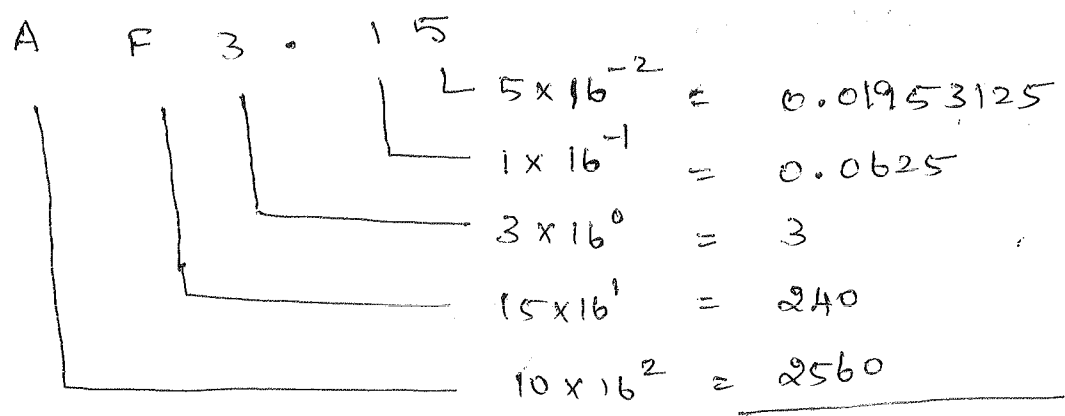 A F 3 . 1 5
5 × 16⁻² = 0.01953125
1 × 16⁻¹ = 0.0625
3 × 16⁰ = 3
15 × 16¹ = 240
10 × 16² = 2560